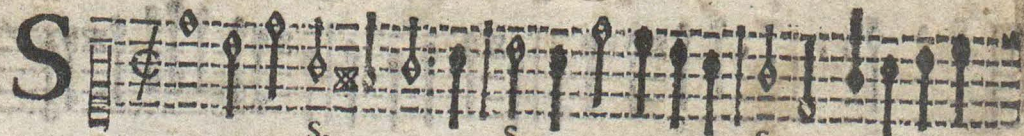 S
S. S S